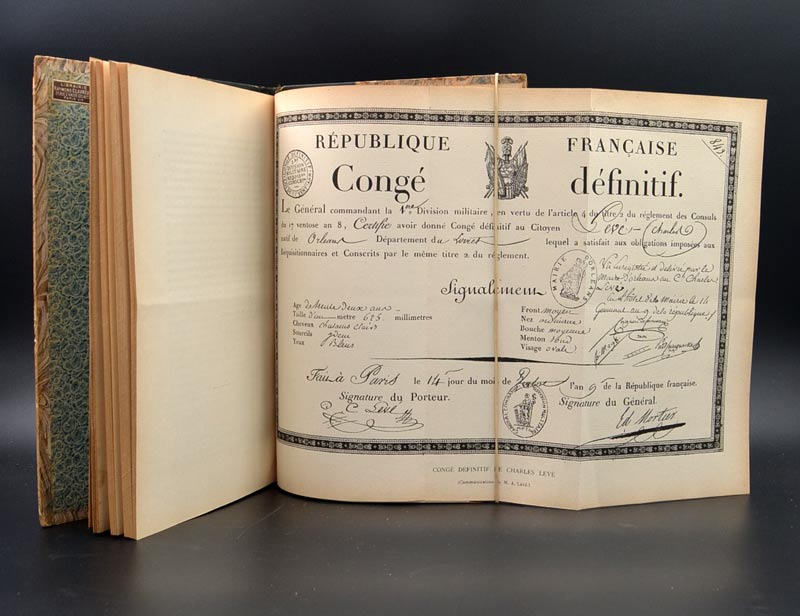 LIBRAIRIE
RAYMOND CLAVREUIL
PARIS
RÉPUBLIQUE FRANÇAISE
843
Congé définitif.
Le Général commandant la 1ère Division militaire, en vertu de l'article 4 du titre 2 du réglement des Consuls
du 17 ventose an 8, Certifie avoir donné Congé définitif au Citoyen Levé Charles
natif de Orléans Département du Loiret lequel a satisfait aux obligations imposées aux
Réquisitionnaires et Conscrits par le même titre 2 du réglement.
Signalement
Age de trente deux ans
Taille d'un metre 625 millimetres
Cheveux chatains clairs
Sourcils idem
Yeux Bleus
Front moyen
Nez ordinaire
Bouche moyenne
Menton rond
Visage ovale
MAIRIE D'ORLEANS
Vu enregistré et délivré par le
Maire d'orléans au Cn Charles
Levé
à l'hôtel de la mairie le 14
an 9 de la république
Fait à Paris le 14 jour du mois de l'an 9 de la République française.
Signature du Porteur. Signature du Général.
C Levé
Ed. Mortier
CONGÉ DÉFINITIF DE CHARLES LEVÉ
(Communication de M. A. Levé.)